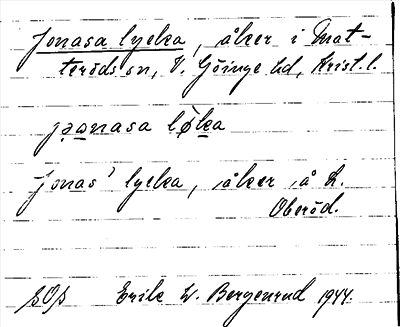 Jonasa lycka, åker i Mat-
teröds sn, V. Göinge hd, Krist. l.
jaonasa løka
Jonas' lycka, åker å L.
Oberöd.
Erik W. Bergenrud 1944.